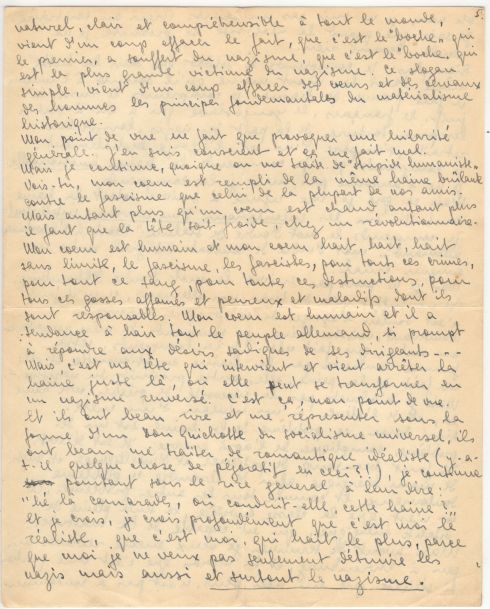 5.
naturel, clair et compréhensible à tout le monde,
vient d'un coup effacer le fait, que c'est le "boche" qui
le premier, a souffert du nazisme, que c'est le "boche" qui
est la plus grande victime du nazisme. Ce slogan
simple, vient d'un coup effacer des cœurs et des cerveaux
des hommes les principes fondementales du matérialisme
historique.
Mon point de vue ne fait que provoquer une hilarité
générale. J'en suis conscient et ça me fait mal.
Mais je continue, quoique on me traite de "stupide humaniste".
Vois-tu, mon cœur est rempli de la même haine brûlante
contre le fascisme que celui de la plupart de nos amis.
Mais autant plus qu'un cœur est chaud autant plus
il faut que la tête soit froide, chez un révolutionnaire.
Mon cœur est humain et mon cœur hait, hait, hait
sans limite, le fascisme, les fascistes, pour touts ces crimes,
pour tout ce sang, pour toutes ces destructions, pour
tous ces gosses affamés et peureux et maladifs dont ils
sont responsables. Mon cœur est humain et il a
tendance à haïr tout le peuple allemand, si prompt
à répondre aux désirs sadiques de ses dirigeants----
Mais, c'est ma tête qui intervient et vient arrêter la
haine juste là, où elle peut se transformer en
un nazisme renversé. C'est ça, mon point de vue.
Et ils ont beau rire et me répresenter sous la
forme d'un Don Quichotte du socialisme universel, ils
ont beau me traiter de romantique idéaliste (y-a-
t-il quelque chose de péjoratif en ceci?!), je continue
pourtant sous le rire general à leur dire:
"hé la camarade, où conduit-elle, cette haine?"
Et je crois, je crois profondément que c'est moi le
réaliste, que c'est moi, qui hait le plus, parce
que moi je ne veux pas seulement détruire les
nazis mais aussi et surtout le nazisme.